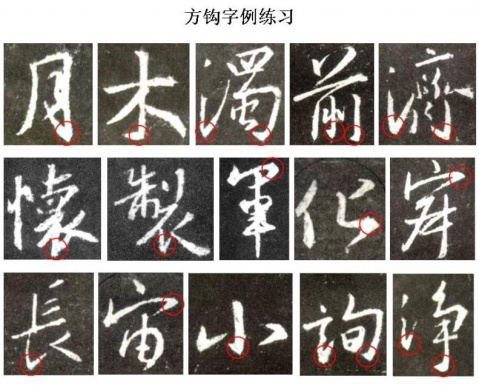 方钩字例练习
月 木 濁 前 濟
懷 製 軍 化
長 宙 小 詢 浄